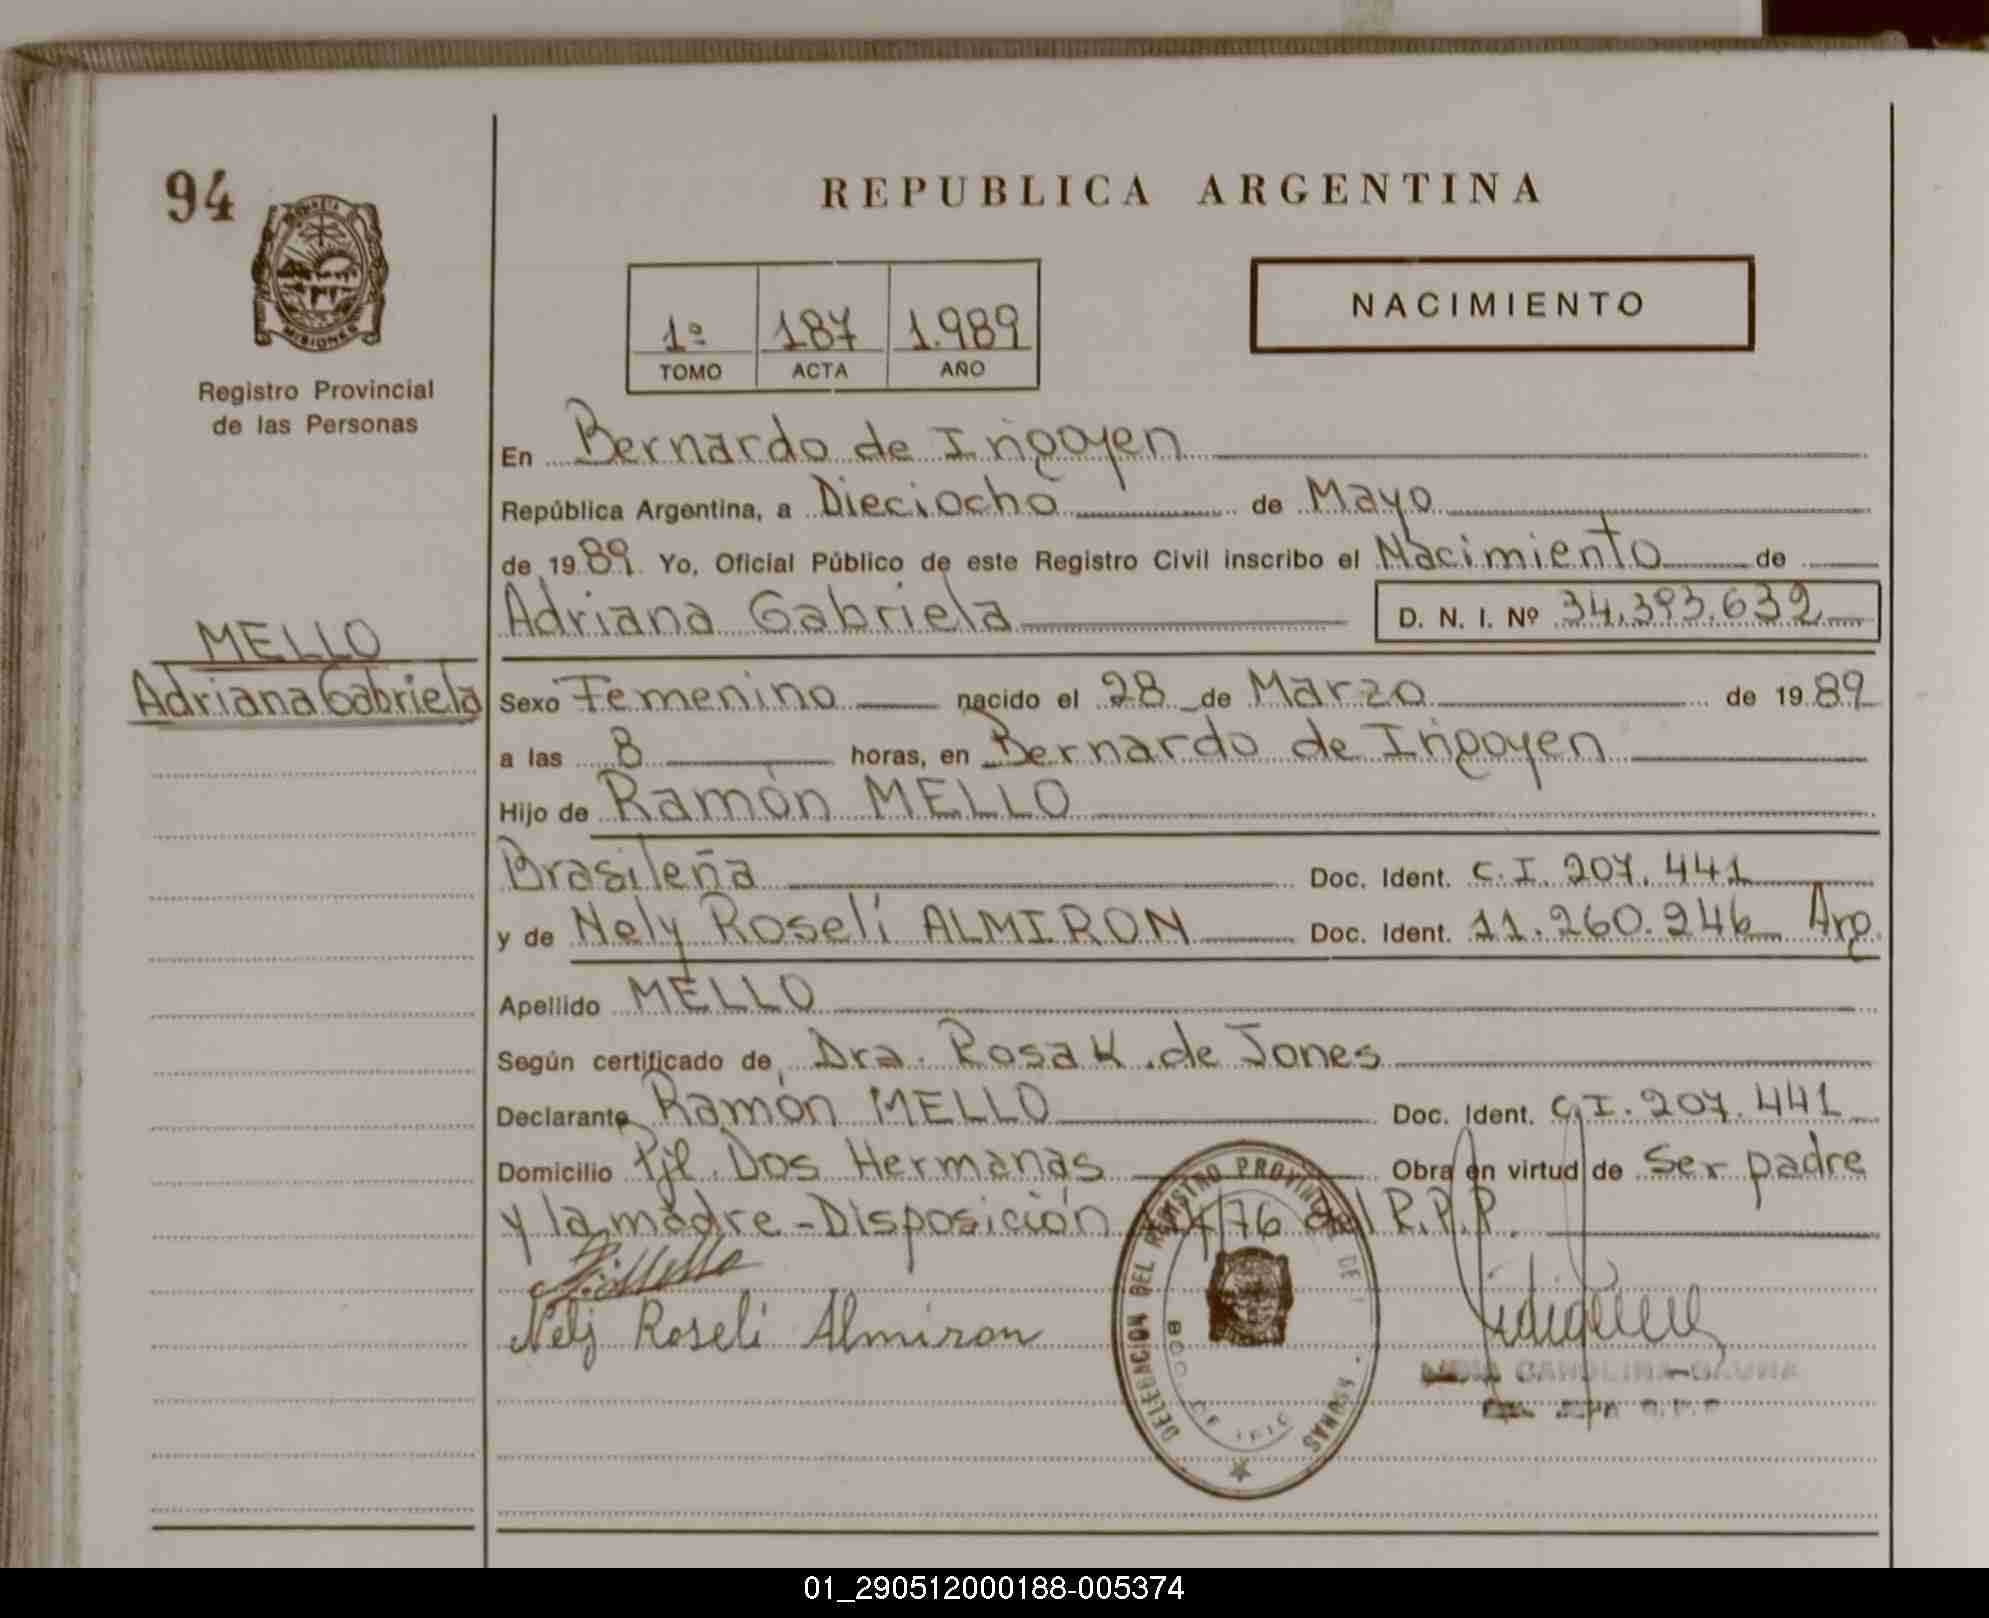 94
REPUBLICA ARGENTINA
MISIONES
Registro Provincial
de las Personas
1º 187 1.989
TOMO ACTA AÑO
NACIMIENTO
En Bernardo de Irigoyen
República Argentina, a Dieciocho de Mayo
de 1989 Yo, Oficial Público de este Registro Civil inscribo el Nacimiento de
Adriana Gabriela D. N. I. Nº 34.393.632
MELLO
Adriana Gabriela
Sexo Femenino nacido el 28 de Marzo de 1989
a las 8 horas, en Bernardo de Irigoyen
Hijo de Ramón MELLO
Brasileña Doc. Ident. C.I. 207.441
y de Nely Roselí ALMIRON Doc. Ident. 11.260.246 Arg.
Apellido MELLO
Según certificado de Dra. Rosa K. de Jones
Declarante Ramón MELLO Doc. Ident. C.I. 207.441
Domicilio Pje. Dos Hermanas Obra en virtud de Ser padre
y la madre - Disposición /76 del R.P.P.
Nely Roseli Almiron
DELEGACION DEL REGISTRO PROVINCIAL DE
CAROLINA
01_290512000188-005374